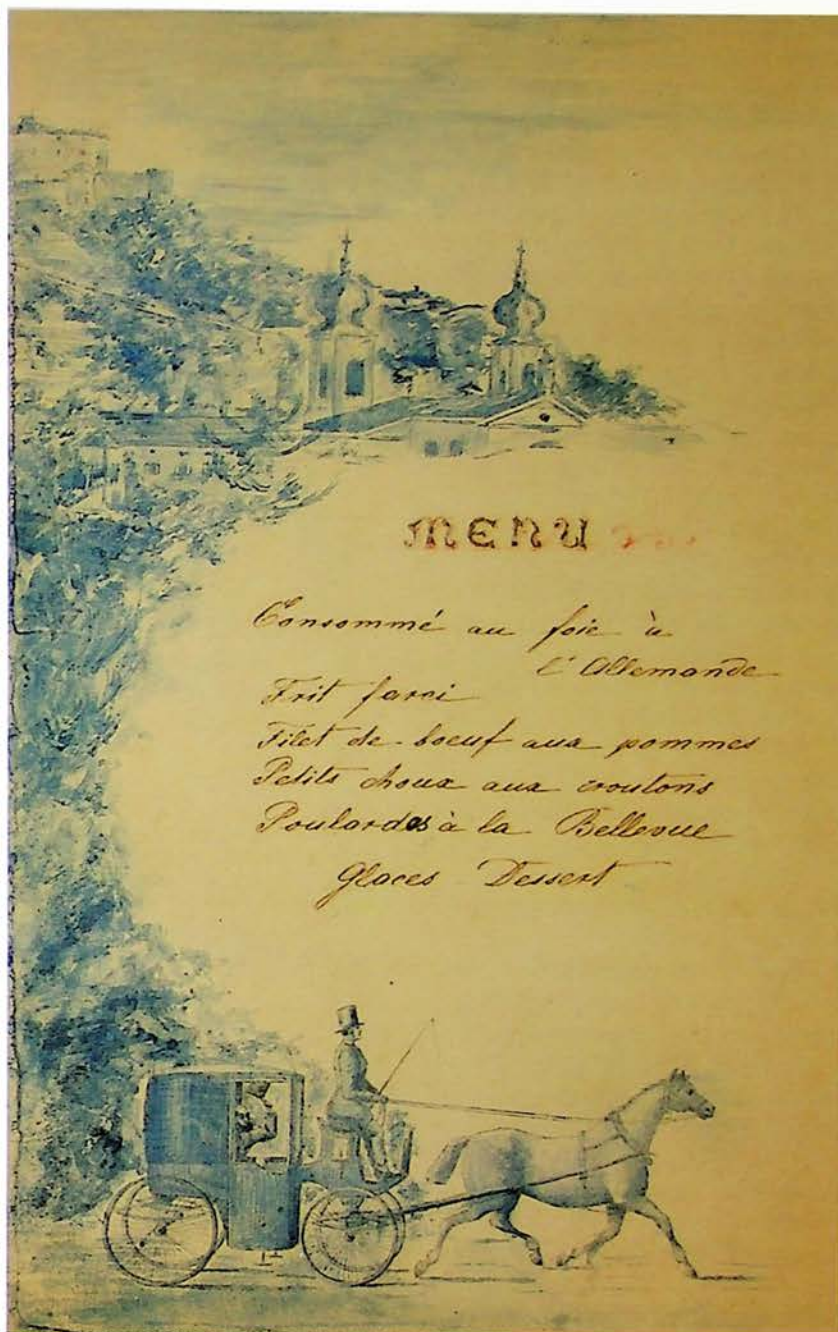 MENU
Consommé au foie à
l'Allemande
Frit farci
Filet de boeuf aux pommes
Petits choux aux croutons
Poulardes à la Bellevue
Glaces Dessert